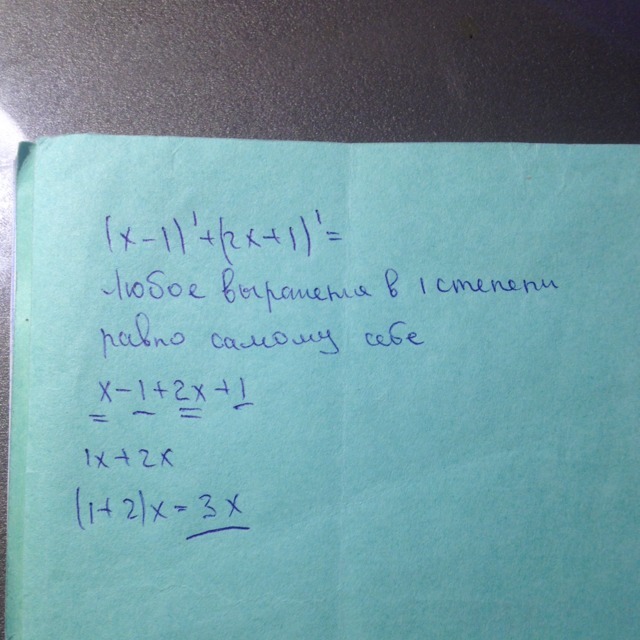 (x-1)¹+(2x+1)¹=
Любое выражения в 1 степени
равно самому себе
x-1+2x+1
1x+2x
(1+2)x=3x